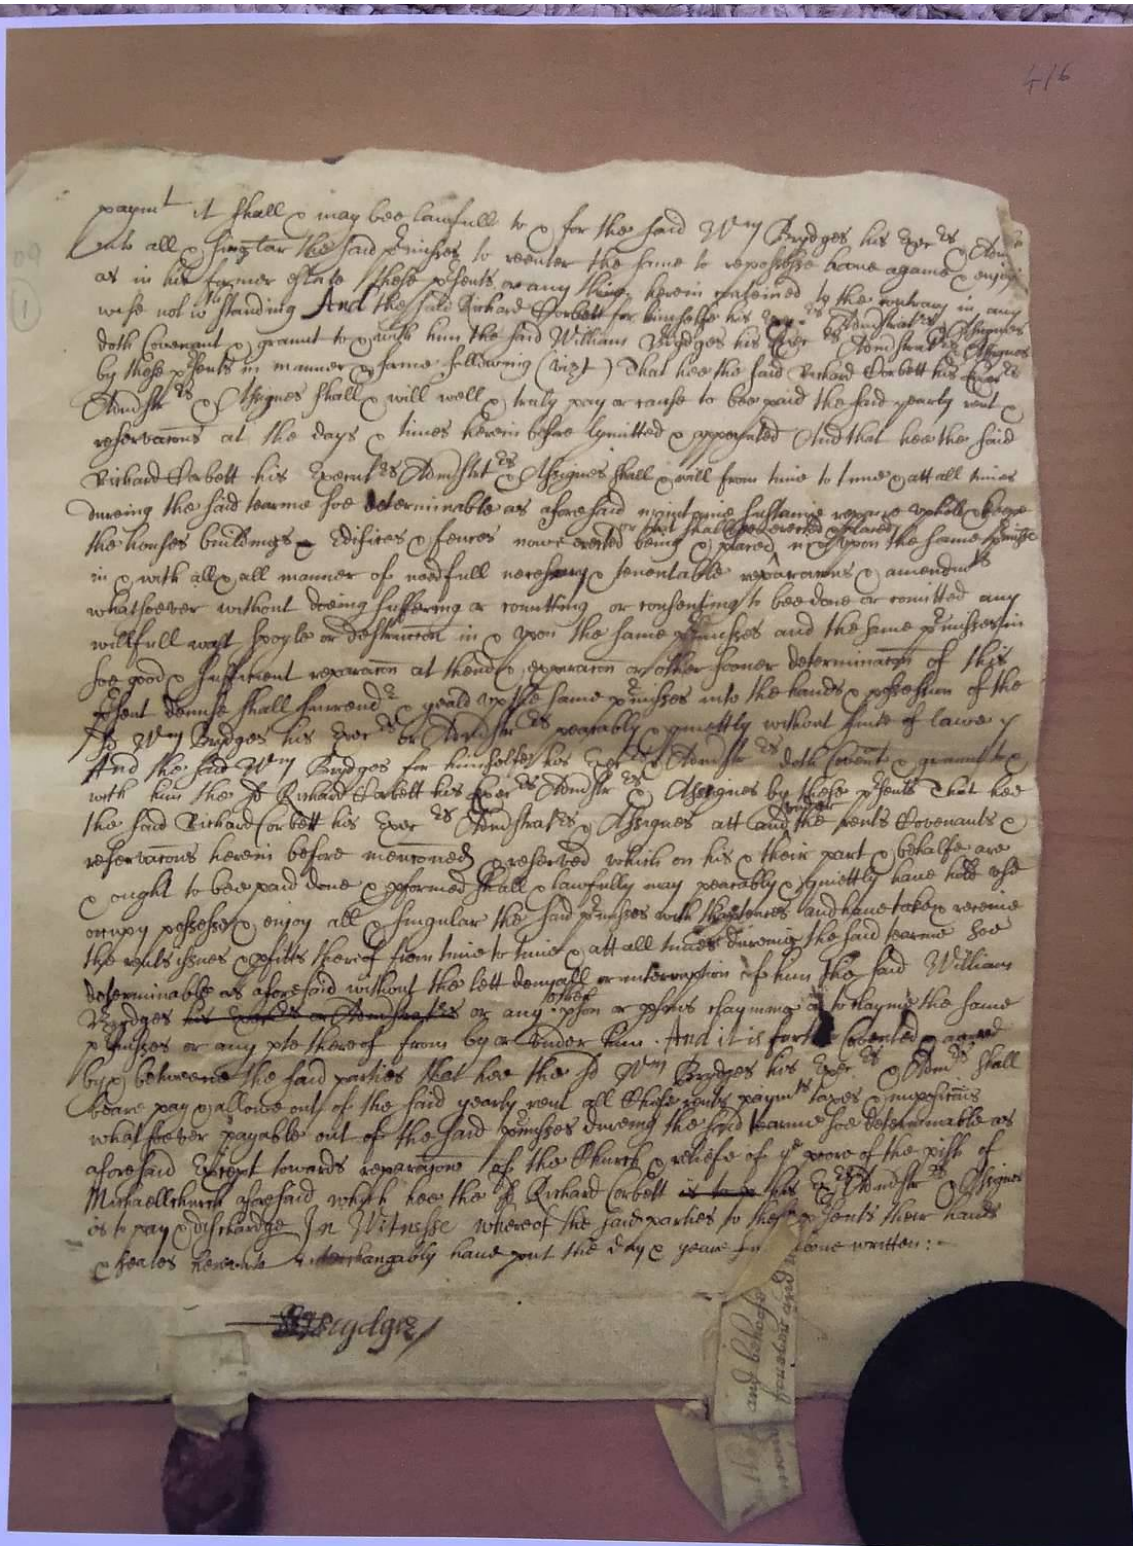 416
paymt it shall & may bee lawfull to & for the said Wm Brydges his Execrs & Adm
into all & singular the said p'misses to reenter the same to repossesse have againe & enjoy
as in his former estate these p'sents or any thing herein conteined to the contrary in any
wise not wthstanding And the said Richard Corbett for himselfe his Exec:rs Adminstratrs & Assignes
doth Covenant & graunt to & with him the said William Brydges his Execrs Adminstratrs & Assignes
by these p'sents in manner & forme following (vizt) That hee the said Richard Corbett his Execrs
Adminstrs & Assignes shall & will well & truly pay or cause to bee paid the said yearly rent &
reservacons at the days & times herein before lymitted & appoynted And that hee the said
Richard Corbett his Executrs Adminstrs & Assignes shall & will from time to time & att all times
dureing the said tearme soe determinable as aforesaid maintaine sustaine repaire uphold & keepe
or that shall bee erected & placed
the houses buildings & Edifices & fences nowe erected being & placed in & upon the same p'misses
in & with all & all manner of needfull necessary & tenentable repairacons & amendmts
whatsoever without doeing suffering or comitting or consenting to bee done or comitted any
willfull wast spoyle or destruccon in & upon the same p'misses and the same p'misses in
soe good & sufficient reparacon at thend & expiracon or other sooner determinacon of this
p'sent demise shall surrendr & yeald up the same p'misses into the hands & possession of the
sd Wm Brydges his Execrs or Adminstrs peacably & quiettly without suite of lawe
And the said Wm Brydges for himselfe his Execrs & Adminstrs doth Covent & graunt to &
with him the sd Richard Corbett his Execrs Adminstrs & Assignes by these p'sents That hee
under
the said Richard Corbett his Execrs Adminstratrs & Assignes att and the rents Covenants &
reservacons herein before menconed & reserved which on his & their part & behalfe are
& ought to bee paid done & p'formed shall & lawfully may peacably & quiettly have hold use
occupy possesse & enjoy all & singular the said p'misses with thapp'tences and have take & receive
the rents issues & p'fitts thereof from time to time & att all times dureing the said tearme soe
determinable as aforesaid without the lett denyall or interruption of him the said William
other
Brydges his Execrs or Adminstratrs or any p'son or p'sons clayming or to clayme the same
p'misses or any pte thereof from by or under him. And it is Covented & agreed
by & betweene the said parties that hee the sd Wm Brydges his Execrs & Admrs shall
beare pay & allowe out of the said yearly rent all Chife rents paymts taxes & imposicons
whatsoever payable out of the said p'misses dureing the said tearme soe determinable as
aforesaid Except towards reparacons of the Church & releife of ye poore of the pish of
Michaellchurch aforesaid which hee the sd Richard Corbett is to p his Execrs Adminstrs & Assignes
is to pay & dischardge In Witnesse whereof the said parties to these p'sents their hands
& seales hereunto interchangably have putt the day & yeare written:
Brydges
and behoofe